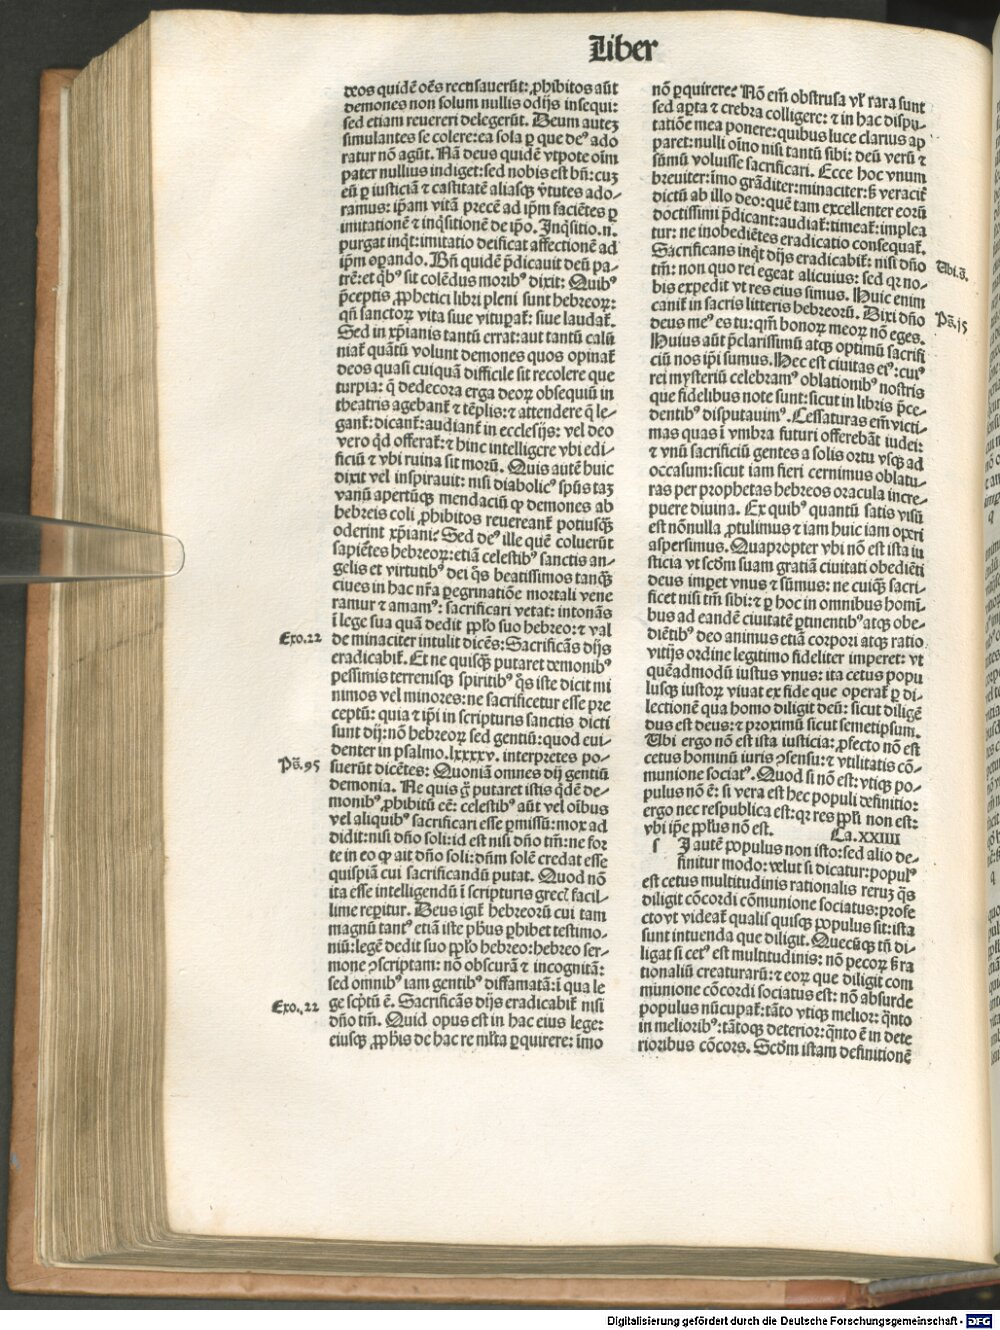 Liber
deos quidē oēs rectisauerūt: ꝓhibitos aūt
demones non solum nullis odijs insequi:
sed etiam reuereri delegerūt. Deum autez
simulantes se colere: ea sola ꝑ que deꝰ ado
ratur nō agūt. Nā deus quidē vtpote oīm
pater nullius indiget: sed nobis est bn̄: cuz
eū ꝑ iusticiā ⁊ castitatē aliasqꝫ v̓tutes ado-
ramus: ip̄am vitā precē ad ip̄m faciētes ꝑ
imitationē ⁊ inq̓sitionē de ip̄o. Inq̓sitio .n.
purgat inqͥt: imitatio deificat affectionē ad
ip̄m oꝑando. Bn̄ quidē p̄dicauit deū pa-
trē: et qͥbꝰ sit colēdus moribꝰ dixit: Quibꝰ
p̄ceptis ꝓphetici libri pleni sunt hebreoꝝ:
qn̄ sanctoꝝ vita siue vituꝑat̄: siue laudat̄.
Sed in xp̄ianis tantū errat: aut tantū calū
niat̄ quātū volunt demones quos opinat̄
deos quasi cuiquā difficile sit recolere que
turpia: q̄ dedecora erga deoꝝ obsequiū in
theatris agebant̄ ⁊ tēplis: ⁊ attendere q̄ le-
gant̄: dicant̄: audiant̄ in ecclesijs: vel deo
vero qͥd offerat̄: ⁊ hinc intelligere vbi edi-
ficiū ⁊ vbi ruina sit morū. Quis autē huic
dixit vel inspirauit: nisi diabolicꝰ spūs taꝫ
vanū apertūqꝫ mendaciū ꝙ demones ab
hebreis coli ꝓhibitos reuereant̄ potiusqꝫ
oderint xp̄iani? Sed deꝰ ille quē coluerūt
sapiētes hebreoꝝ: etiā celestibꝰ sanctis an-
gelis et virtutibꝰ dei q̊s beatissimos tanqꝫ
ciues in hac nr̄a ꝑegrinatiōe mortali vene
ramur ⁊ amamꝰ: sacrificari vetat: intonās
ī lege sua quā dedit ꝓp̄lo suo hebreo: ⁊ val
Exo.22
de minaciter intulit dicēs: Sacrificās dijs
eradicabit̄. Et ne quisqꝫ putaret demonibꝰ
pessimis terrenisqꝫ spiritibꝰ q̊s iste dicit mi
nimos vel minores: ne sacrificetur esse pre
ceptū: quia ⁊ ip̄i in scripturis sanctis dicti
sunt dij: nō hebreoꝝ sed gentiū: quod eui-
denter in psalmo .lxxxxv. interpretes po-
Ps̄.95
suerūt dicētes: Quoniā omnes dij gentiū
demonia. Ne quis g̊ putaret istis qͥdē de-
monibꝰ ꝓhibitū eē: celestibꝰ aūt vel oībus
vel aliquibꝰ sacrificari esse ꝑmissū: mox ad
didit: nisi dn̄o soli: id est nisi dn̄o tm̄: ne for
te in eo ꝙ ait dn̄o soli: dn̄m solē credat esse
quispiā cui sacrificandū putat. Quod nō
ita esse intelligendū ī scripturis grecꝭ facil-
lime reꝑitur. Deus igit̄ hebreorū cui tam
magnū tantꝰ etiā iste ph̄us ꝑhibet testimo-
niū: legē dedit suo ꝓp̄lo hebreo: hebreo ser-
mone ꝯscriptam: nō obscurā ⁊ incognitā:
sed omnibꝰ iam gentibꝰ diffamatā: ī qua le
Exo.22
ge scp̄tū ē. Sacrificās dijs eradicabit̄ nisi
dn̄o tm̄. Quid opus est in hac eius lege:
eiusqꝫ ꝓph̄is de hac re ml̓ta ꝑquirere: īmo
nō ꝑquirere? Nō em̄ obstrusa vl̓ rara sunt
sed aꝑta ⁊ crebra colligere: ⁊ in hac dispu-
tatiōe mea ponere: quibus luce clarius ap
paret: nulli oīno nisi tantū sibi: deū verū ⁊
sūmū voluisse sacrificari. Ecce hoc vnum
breuiter: īmo grāditer: minaciter: s̄ veracit̄
dictū ab illo deo: quē tam excellenter eorū
doctissimi p̄dicant: audiat̄: timeat̄: implea
tur: ne inobediētes eradicatio consequat̄.
Sacrificans inqͥt dijs eradicabit̄: nisi dn̄o
Vbi.s̄.
tm̄: non quo rei egeat alicuius: sed qꝛ no-
bis expedit vt res eius simus. Huic enim
canit̄ in sacris litteris hebreorū. Dixi dn̄o
Ps̄.15
deus meꝰ es tu: qm̄ bonoꝝ meoꝝ nō eges.
Huius aūt p̄clarissimū atqꝫ optimū sacrifi
ciū nos ip̄i sumus. Hec est ciuitas eiꝰ: cuiꝰ
rei mysteriū celebramꝰ oblationibꝰ nostris
que fidelibus note sunt: sicut in libris p̄ce-
dentibꝰ disputauimꝰ. Cessaturas em̄ victi-
mas quas ī vmbra futuri offerebāt iudei:
⁊ vnū sacrificiū gentes a solis ortu vsqꝫ ad
occasum: sicut iam fieri cernimus oblatu-
ras per prophetas hebreos oracula incre-
puere diuina. Ex quibꝰ quantū satis visū
est nōnulla ꝓtulimus ⁊ iam huic iam oꝑeri
aspersimus. Quapropter vbi nō est ista iu
sticia vt scd̄m suam gratiā ciuitati obediēti
deus imꝑet vnus ⁊ sūmus: ne cuiqꝫ sacri-
ficet nisi tm̄ sibi: ⁊ ꝑ hoc in omnibus homī-
bus ad eandē ciuitatē ꝑtinentibꝰ atqꝫ obe-
diētibꝰ deo animus etiā corpori atqꝫ ratio
vitijs ordine legitimo fideliter imperet: vt
quēadmodū iustus vnus: ita cetus popu
lusqꝫ iustoꝝ viuat ex fide que operat̄ ꝑ di-
lectionē qua homo diligit deū: sicut diligē
dus est deus: ⁊ proximū sicut semetipsum.
Vbi ergo nō est ista iusticia: ꝓfecto nō est
cetus hominū iuris ꝯsensu: ⁊ vtilitatis cō-
munione sociatꝰ. Quod si nō est: vtiqꝫ po-
pulus nō ē: si vera est hec populi definitio:
ergo nec respublica est: qꝛ res pp̄li non est:
vbi ip̄e pp̄lus nō est. Ca.XXIIII
s I autē populus non isto: sed alio de-
finitur modo: velut si dicatur: populꝰ
est cetus multitudinis rationalis reruꝫ q̊s
diligit cōcordi cōmunione sociatus: profe
cto vt videat̄ qualis quisqꝫ populus sit: ista
sunt intuenda que diligit. Quecūqꝫ tn̄ di-
ligat si cetꝰ est multitudinis: nō pecoꝝ s̄ ra
tionaliū creaturarū: ⁊ eoꝝ que diligit com
munione cōcordi sociatus est: nō absurde
populus nūcupat̄: tāto vtiqꝫ melior: qͣnto
in melioribꝰ: tātoqꝫ deterior: qͣnto ē in dete
rioribus cōcors. Scd̄m istam definitionē
Digitalisierung gefördert durch die Deutsche Forschungsgemeinschaft - DFG